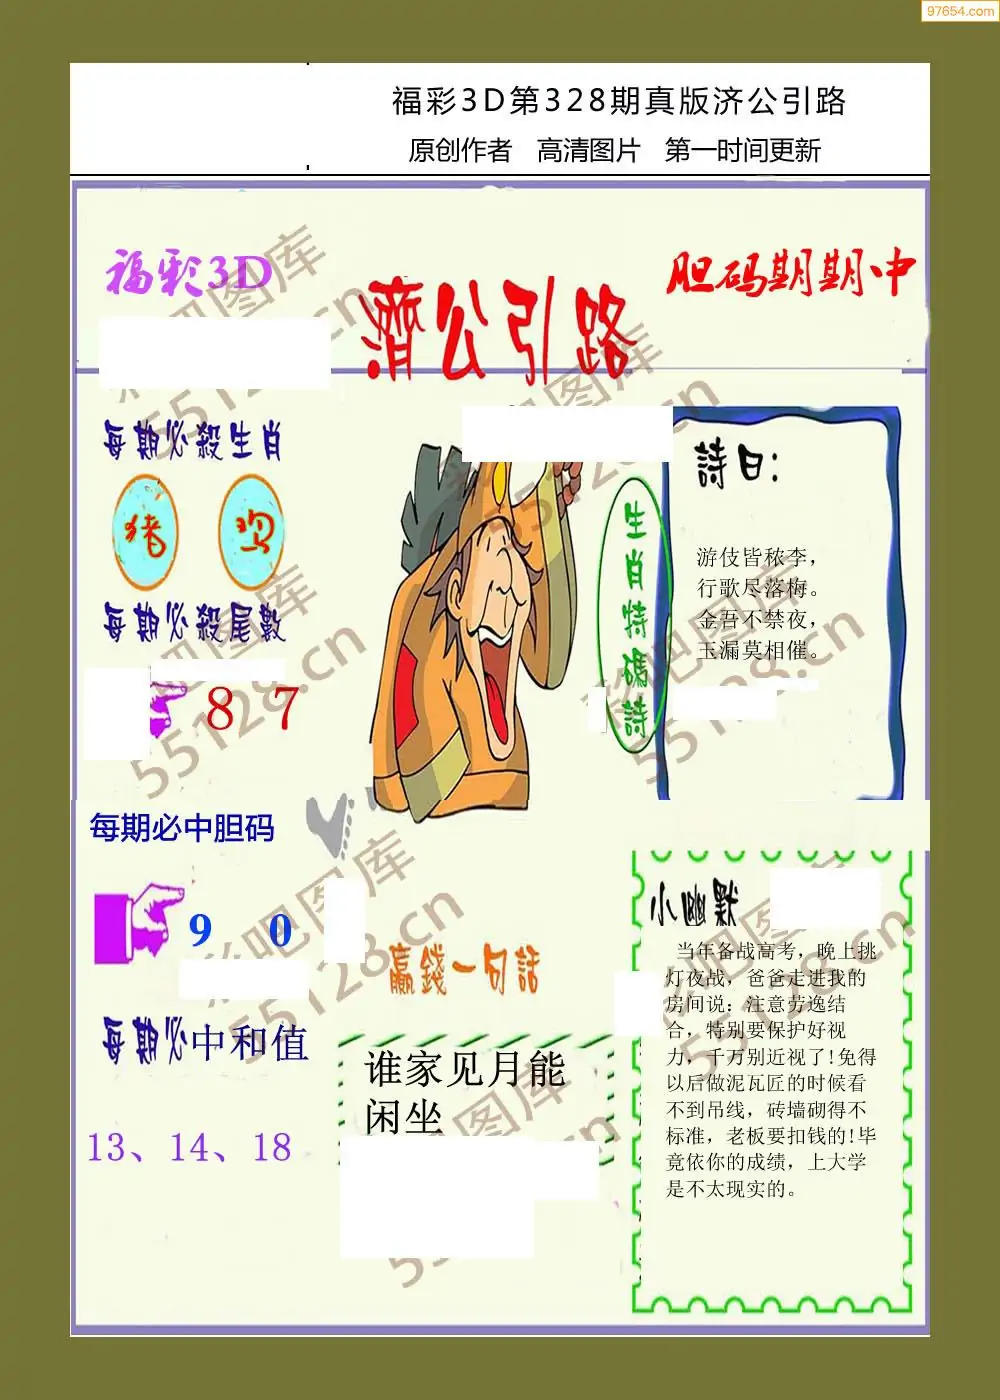 97654.com
福彩3D第328期真版济公引路
原创作者 高清图片 第一时间更新
福彩3D
濟公引路
胆码期期中
每期必殺生肖
猪 鸡
每期必殺尾數
8 7
每期必中胆码
9 0
每期必中和值
13、14、18
生肖特碼詩
詩曰:
游伎皆秾李，
行歌尽落梅。
金吾不禁夜，
玉漏莫相催。
贏錢一句話
谁家见月能
闲坐
小幽默
当年备战高考，晚上挑
灯夜战，爸爸走进我的
房间说：注意劳逸结
合，特别要保护好视
力，千万别近视了!免得
以后做泥瓦匠的时候看
不到吊线，砖墙砌得不
标准，老板要扣钱的!毕
竟依你的成绩，上大学
是不太现实的。
彩吧图库
55128.cn